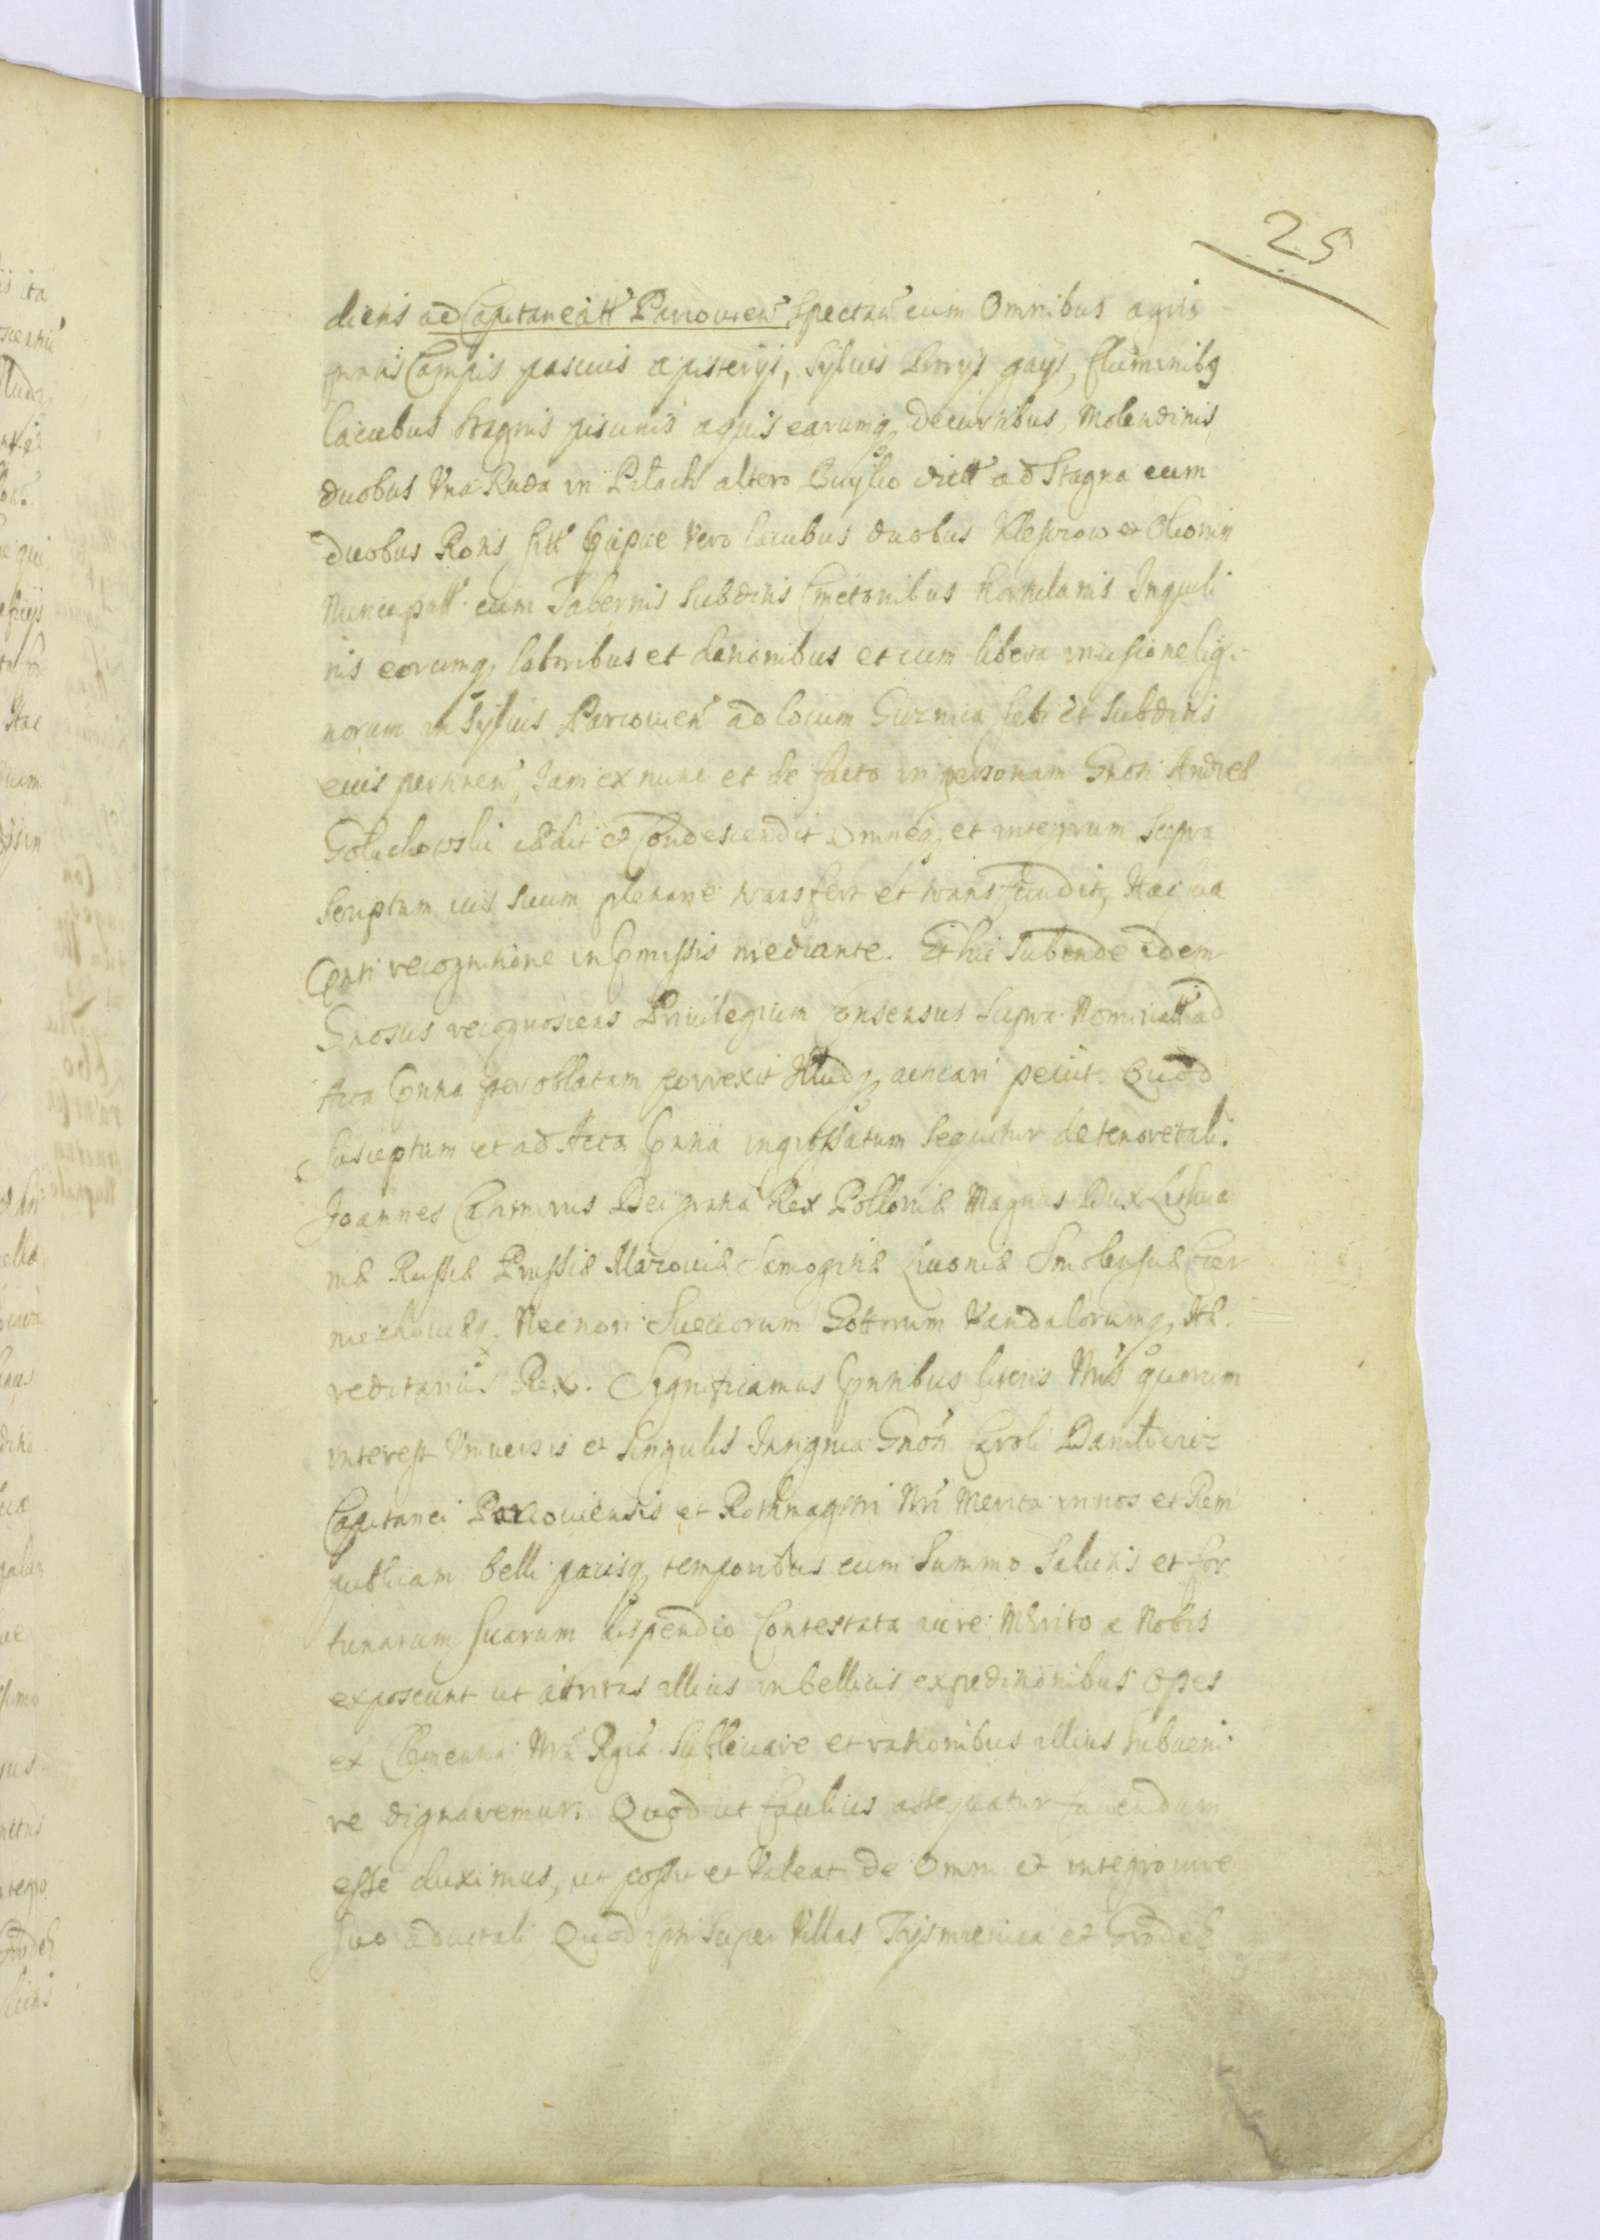 25
diens ad Capitaneatt Parcouien spectan cum Omnibus agris
pratis Campis pascuis apisterijs, Syluis Borijs gays, fluminibq
lacubus stagnis piscinis aquis earumq decursibus, Molendinis
duobus Vna Ruda in Pilach altero dictt ad Stagna cum
duobus Rotis sitt quipue vero lacubus duobus et
Nuncupatt cum Tabernis Subditis Cmetonibus Hortulanis Inquili
nis eorumq laboribus et dationibus et cum libera incisione lig
norum in Syluis Parcouien ad locum sibi et Subditis
euis pertinen, Iam ex nunc et de facto in personam Gnosi Andreæ
Golichowski cedit et Condescendit Omneq et integrum Supra
Scriptum ius suum plenarie transfert et transfundit, Hac sua
Pnti recognitione in Pmissis mediante. Et hic Subinde idem
Gnosus recognoscens Priuilegium Consensus Supra Nominatt ad
Acta Pntia per oblatam porrexit Illudq acticari petiit. Quod
Susceptum et ad Acta Pntia ingrossatum Sequitur de tenore tali.
Joannes Casimirus Dei gratia Rex Polloniæ Magnus Dux Lithua
niæ Russiæ Prussiæ Mazouiæ Samogitiæ Liuoniæ Smolensciæ Czer
niechouiæq, Necnon Suecorum Gottorum Vandalorumq Hæ
reditarius Rex. Significamus Pntibus literis Nris quorum
interest Vniuersis et Singulis Insignia Gnosi Caroli
Capitanei Parcouiensis et Rothmagistri Nri Merita in nos et Rem
publicam belli pacisq temporibus cum Summo Salutis et for
tunarum Suarum dispendio Contestata iure Merito a Nobis
exposcunt ut attritas illius in bellicis expeditionibus Opes
ex Clementia Nra Rgia Subleuare et rationibus illius Subueni
re dignaremur. Quod ut facilius assequatur faciendum
esse duximus, ut possit et Valeat de Omni et integro iure
suo aduitali Quod ipsi Super Villas Tysmienica et Grodek